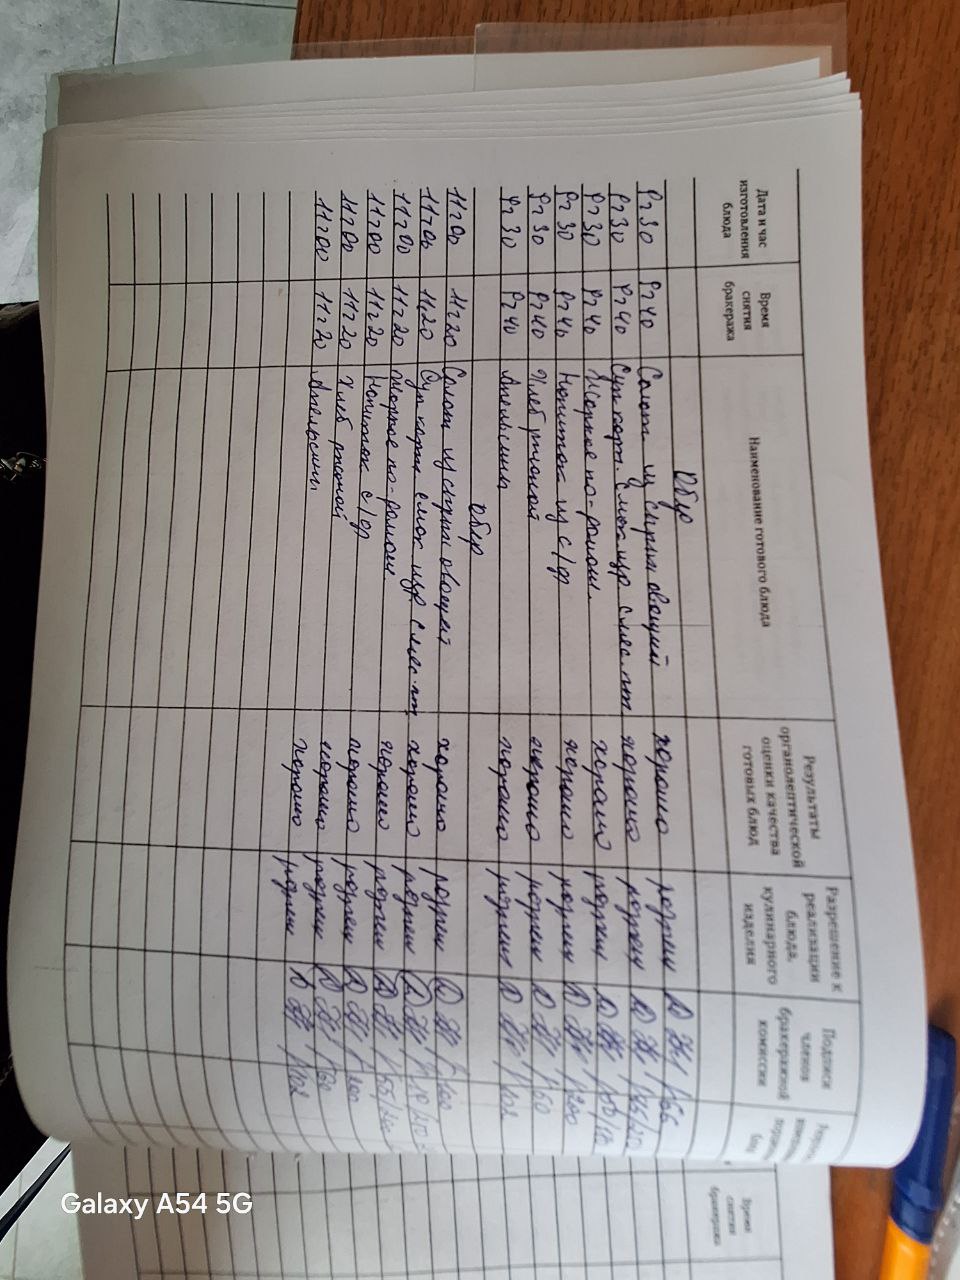 Дата и час изготовления блюда
Время снятия бракеража
Наименование готового блюда
Результаты органолептической оценки качества готовых блюд
Разрешение к реализации блюда, кулинарного изделия
Подписи членов бракеражной комиссии
Обед
9 30 9 40 Салат из сырых овощей хорошо разреш
9 30 9 40 Суп карт. с мяс. хорошо разреш
9 30 9 40 Жаркое по-домаш. хорошо разреш
9 30 9 40 Напиток из с/ф хорошо разреш 200
9 30 9 40 Хлеб ржаной хорошо разреш 60
9 30 9 40 Апельсины хорошо разреш 102
Обед
11 00 11 20 Салат из сырых овощей хорошо разреш 100
11 00 11 20 Суп карт с мяс. хорошо разреш
11 00 11 20 Жаркое по-домаш хорошо разреш
11 00 11 20 Напиток с/ф хорошо разреш 200
11 00 11 20 Хлеб ржаной хорошо разреш 60
11 00 11 20 Апельсины хорошо разреш 102
Время снятия бракеража
Galaxy A54 5G